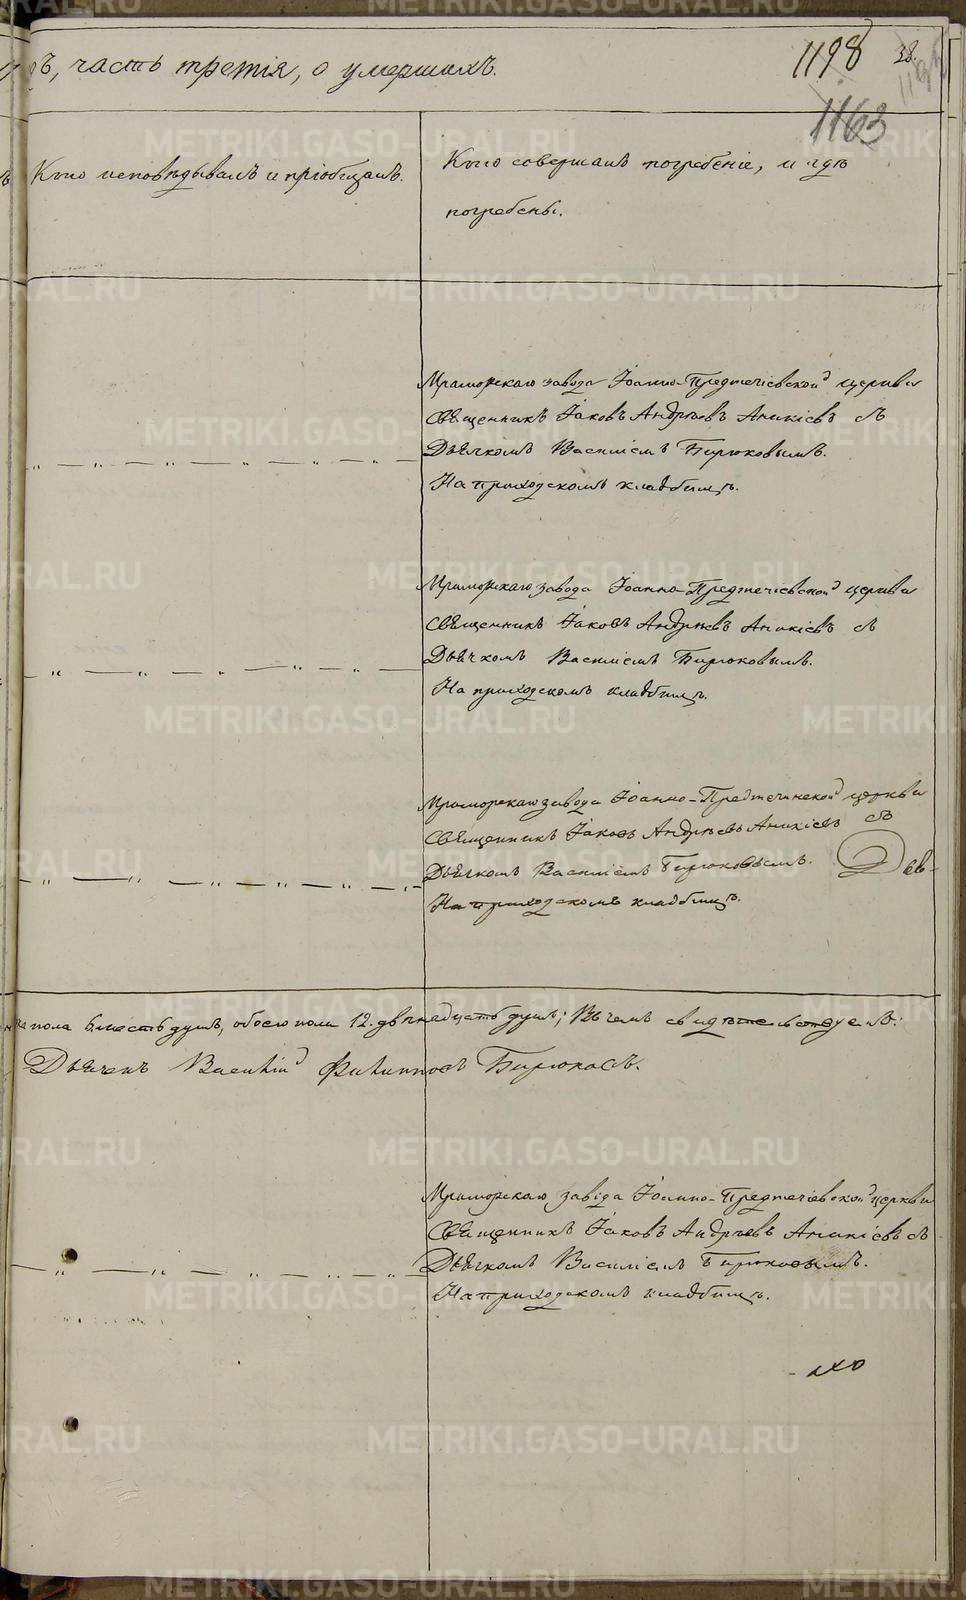 ъ, часть третія, о умершихъ.
1198
38.
1163
Кто исповѣдывалъ и пріобщалъ.
Кто совершалъ погребеніе, и гдѣ
погребены.
Мраморскаго завода Іоанно-Предтечіевской церкви
Священникъ Іаковъ Андреевъ Аникіевъ съ
Дьячкомъ Василіемъ Бирюковымъ.
На приходскомъ кладбищѣ.
Мраморскаго завода Іоанно-Предтечіевской церкви
Священникъ Іаковъ Андреевъ Аникіевъ съ
Дьячкомъ Василіемъ Бирюковымъ.
На приходскомъ кладбищѣ.
Мраморскаго завода Іоанно-Предтечинской церкви
Священникъ Іаковъ Андреевъ Аникіевъ съ
Дьячкомъ Василіемъ Бирюковымъ.
Дев-
На приходскомъ кладбищѣ.
пола 6. шесть душъ, обоего пола 12. двѣнадцать душъ; Въ чемъ свидѣтельствуемъ:
Дьячекъ Василій Филипповъ Бирюковъ.
Мраморскаго завода Іоанно-Предтечіевской церкви
Священникъ Іаковъ Андреевъ Аникіевъ съ
Дьячкомъ Василіемъ Бирюковымъ.
На приходскомъ кладбищѣ.
METRIKI.GASO-URAL.RU